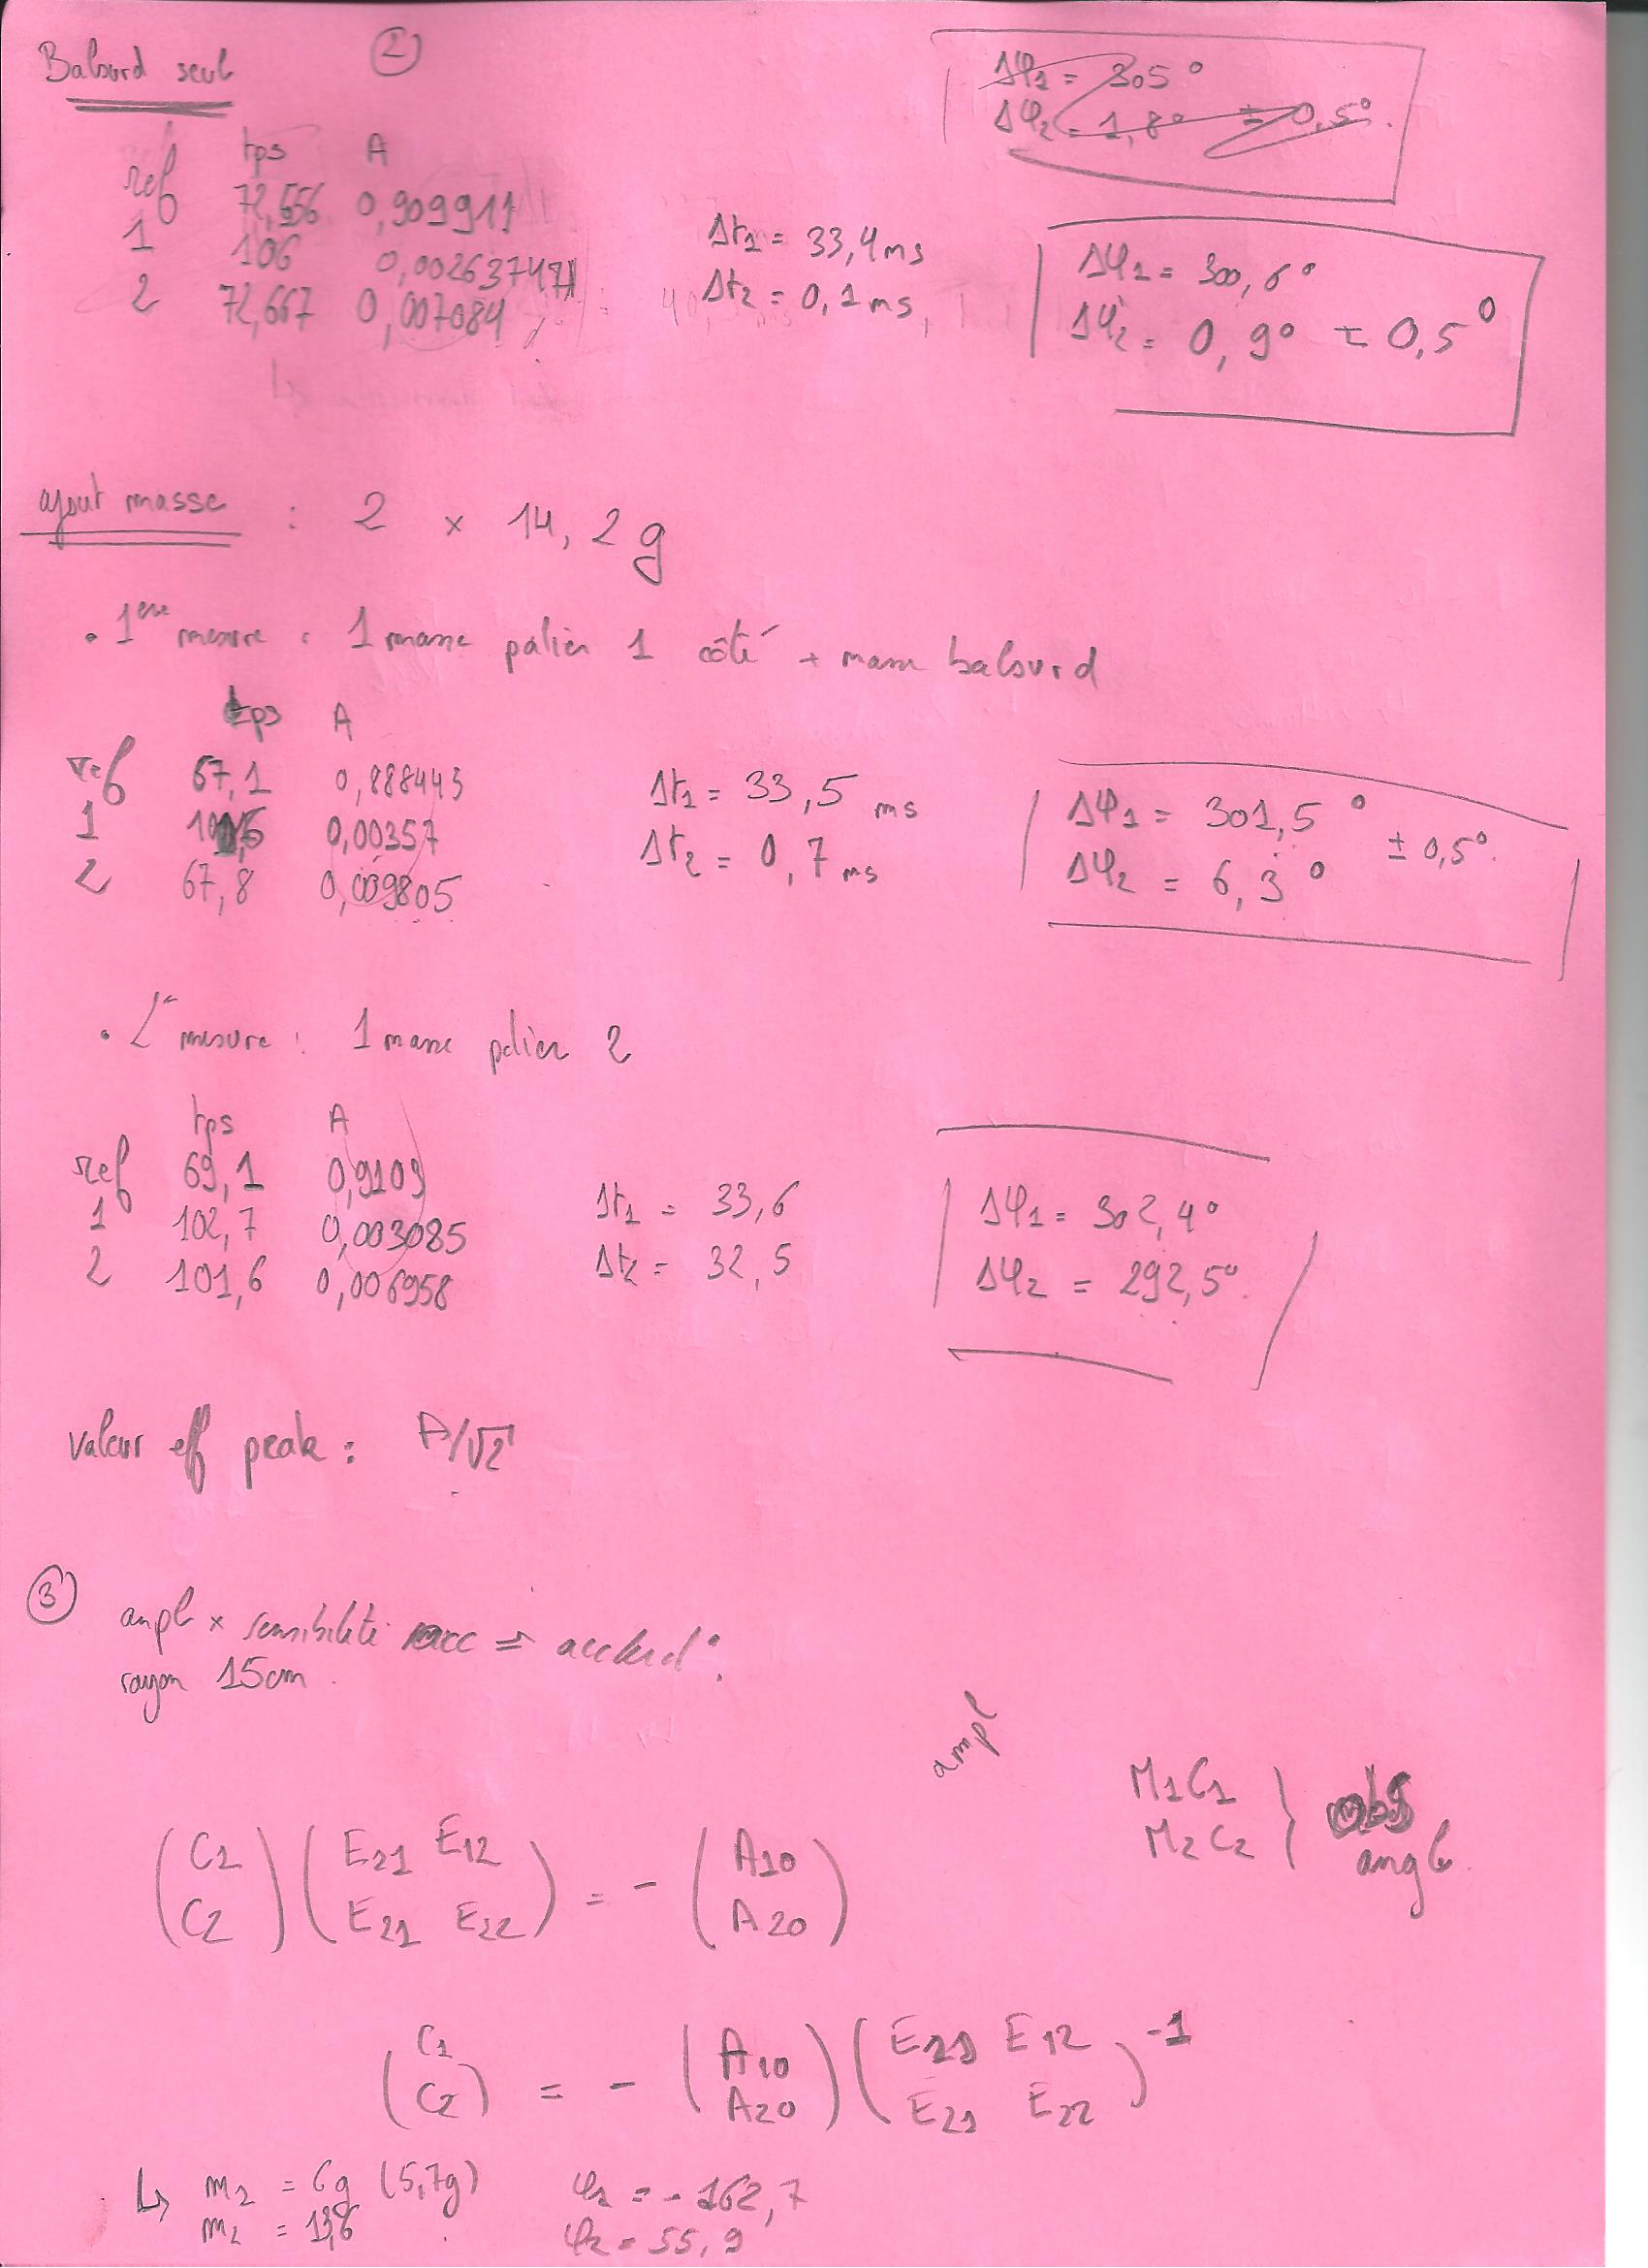 Balourd seul
②
Δφ1 = 305°
Δφ2 = 1,8° ± 0,5°
tps A
ref 72,656 0,909911
1 106 0,002637471
2 72,667 0,007084
Δt1 = 33,4 ms
Δt2 = 0,1 ms
Δφ1 = 300,6°
Δφ2 = 0,9° ± 0,5°
ajout masse : 2 × 14,2 g
• 1ere mesure : 1 masse palier 1 côté + masse balourd
tps A
ref 67,1 0,888443
1 100,6 0,00357
2 67,8 0,009805
Δt1 = 33,5 ms
Δt2 = 0,7 ms
Δφ1 = 301,5° ± 0,5°
Δφ2 = 6,3°
• 2e mesure : 1 masse palier 2
tps A
ref 69,1 0,9109
1 102,7 0,003085
2 101,6 0,006958
Δt1 = 33,6
Δt2 = 32,5
Δφ1 = 302,4°
Δφ2 = 292,5°
valeur eff peak : A/√2
③ ampl × sensibilité acc ⇒
rayon 15cm
ampl
M1C1
M2C2 } abs
angle
(C1 C2) (E21 E12 E21 E22) = - (A10 A20)
(C1 C2) = - (A10 A20) (E11 E12 E21 E22)-1
↳ m1 = 6g (5,7g) φ1 = -162,7
m2 = 13,6 φ2 = 55,9